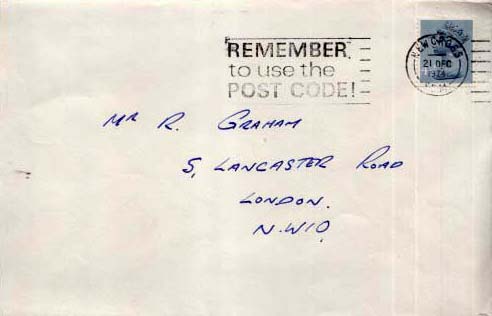 REMEMBER
to use the
POST CODE!
NEW CROSS
21 DEC
1974
MR R. GRAHAM
5, LANCASTER ROAD
LONDON.
N.W10